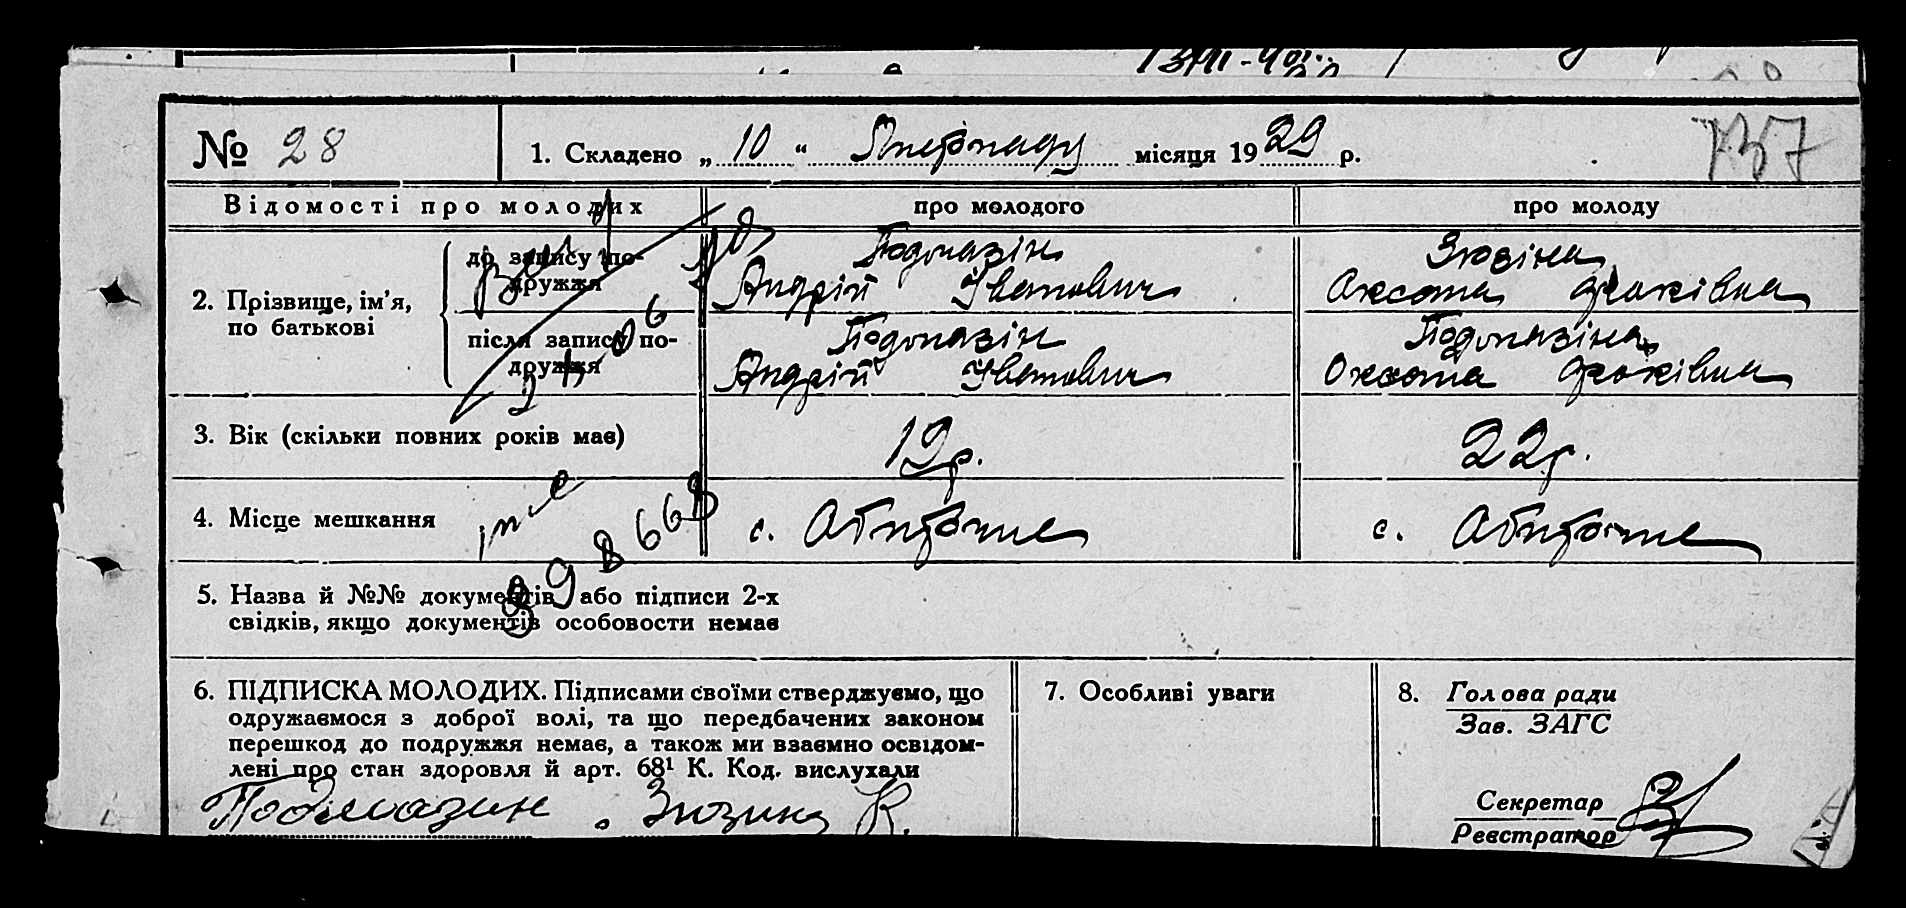 № 28
1. Складено „ 10 “ Листопаду місяця 19 29 р.
137
Відомості про молодих
про молодого
про молоду
2. Прізвище, ім’я,
по батькові
до запису по-
дружжя
Андрій Іванович
Зюзіна
Оксана Яківна
після запису по-
дружжя
Андрій Іванович
Оксана Яківна
3. Вік (скільки повних років має)
19 р.
22 р.
4. Місце мешкання
с.
с.
5. Назва й №№ документів або підписи 2-х
свідків, якщо документів особовости немає
6. ПІДПИСКА МОЛОДИХ. Підписами своїми стверджуємо, що
одружаємося з доброї волі, та що передбачених законом
перешкод до подружжя немає, а також ми взаємно освідом-
лені про стан здоровля й арт. 68¹ К. Код. вислухали
Зюзина
7. Особливі уваги
8. Голова ради
Зав. ЗАГС
Секретар
Реєстратор